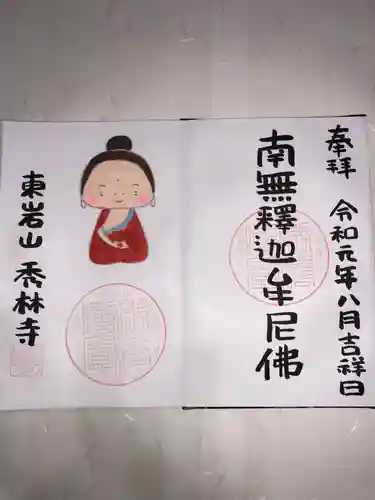 奉拝
令和元年八月吉祥日
南無釋迦牟尼佛
東岩山 秀林寺